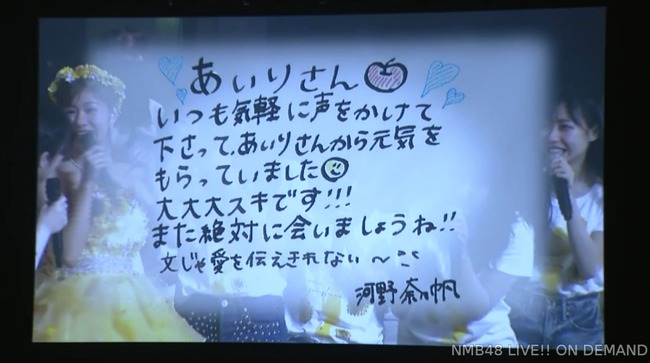 あいりさん
いつも気軽に声をかけて
下さって、あいりさんから元気を
もらっていました
大大大スキです!!!
また絶対に会いましょうね!!
文じゃ愛を伝えきれない〜
河野奈々帆
NMB48 LIVE!! ON DEMAND